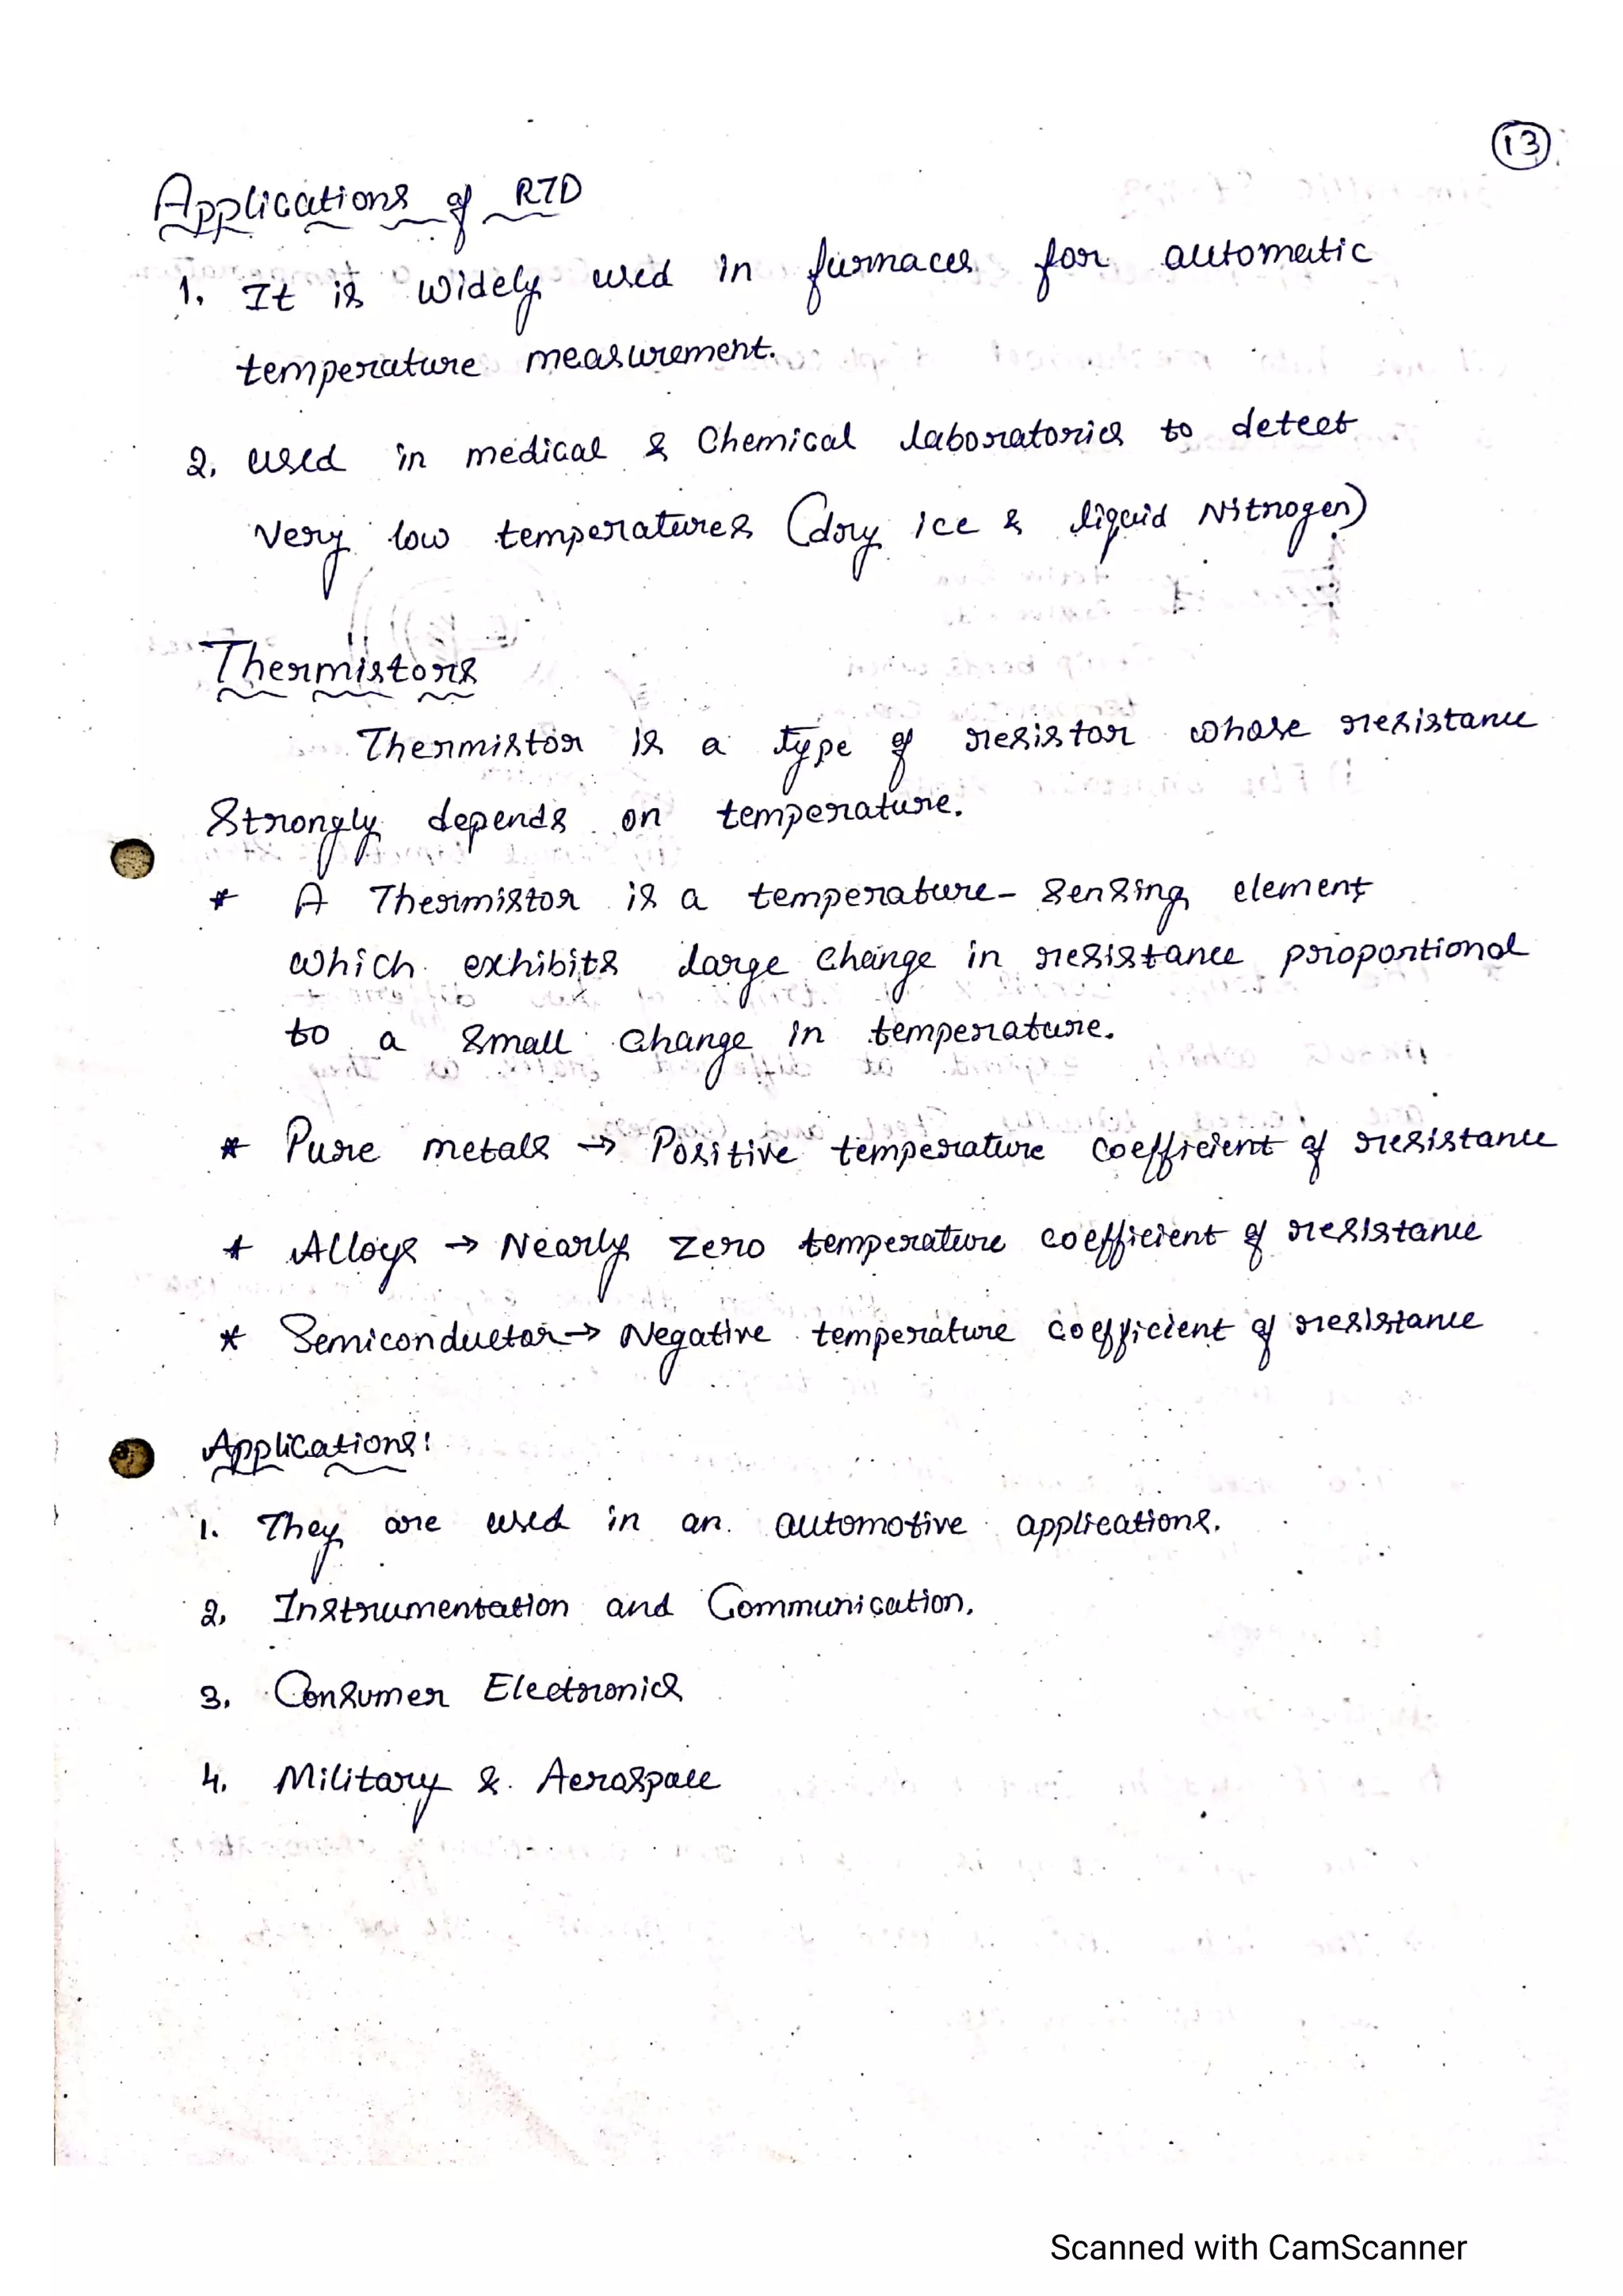 13
Applications of RTD
1. It is widely used in furnaces for automatic
temperature measurement.
2. used in medical & Chemical laboratories to detect
Very low temperatures (dry ice & liquid Nitrogen)
Thermistors
Thermistor is a type of resistor whose resistance
Strongly depends on temperature.
* A Thermistor is a temperature-sensing element
which exhibits large change in resistance proportional
to a small change in temperature.
* Pure metals → Positive temperature coefficient of resistance
* Alloys → Nearly zero temperature coefficient of resistance
* Semiconductor → Negative temperature coefficient of resistance
Applications:
1. They are used in an automotive applications.
2. Instrumentation and Communication.
3. Consumer Electronics
4. Military & Aerospace
Scanned with CamScanner